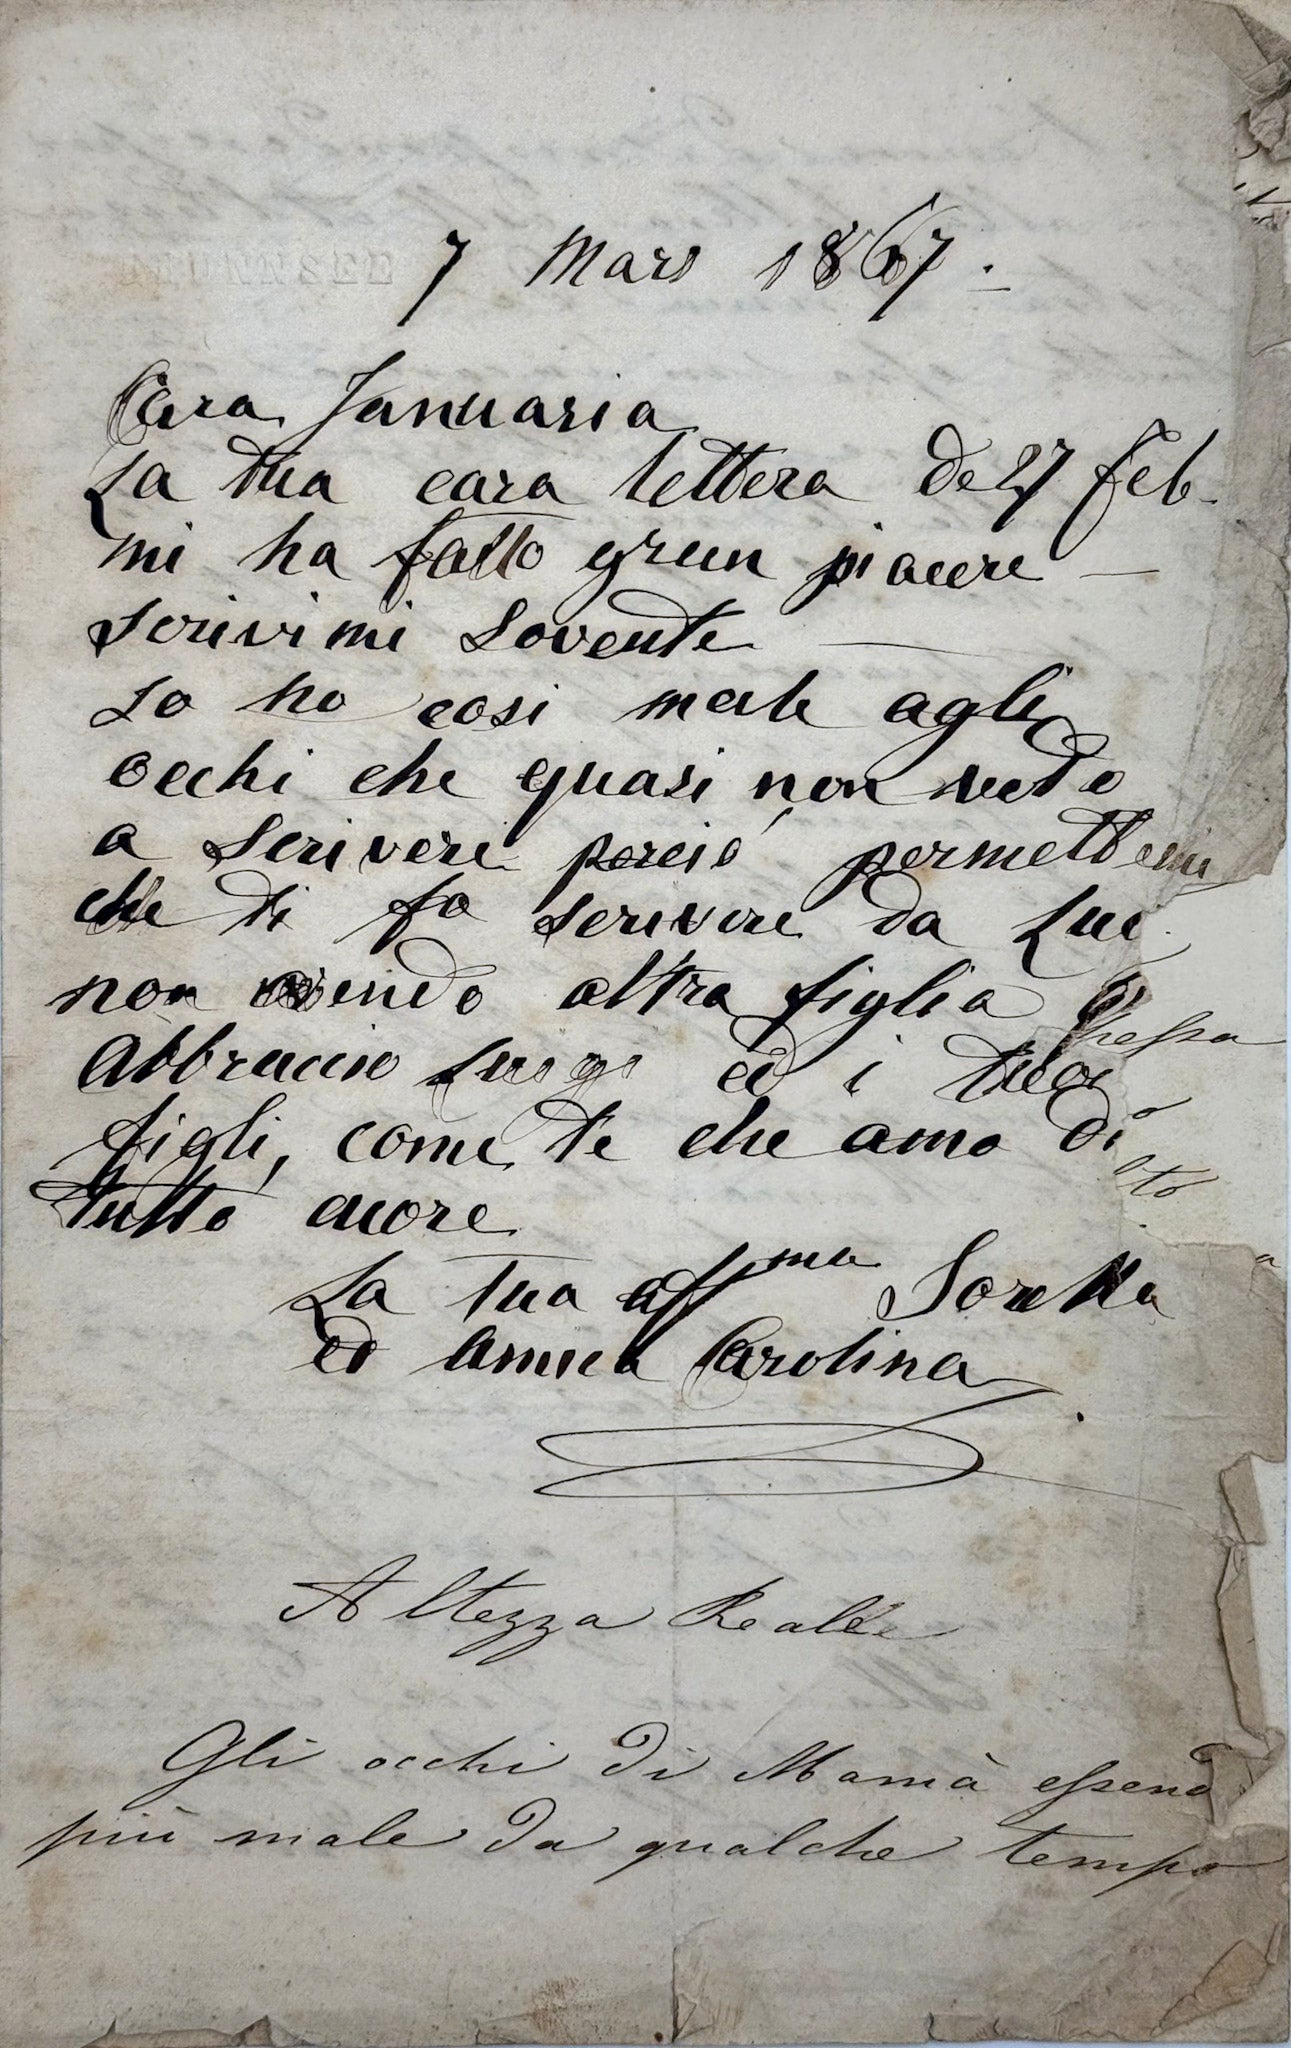 BRUNNSEE
7 Mars 1867.
Cara Januaria
La tua cara lettera de 27 Feb.
mi ha fatto gran piacere —
Scrivimi Sovente —
Io ho cosi male agli
occhi che quasi non vedo
a Scrivere perciò permettemi
che ti fo scrivere da Lui
non avendo altra figlia
Abbraccio Luigi ed i tuoi
figli, come te che amo di
tutto cuore
La tua aff ma Sorella
ed amica Carolina
Altezza Reale
Gli occhi di Mamà essend
più male da qualche tempo